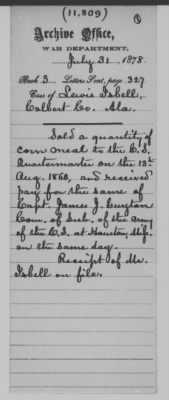 (11.809)
Archive Office,
WAR DEPARTMENT.
July 31, 1878.
Book 3 Letters Sent, page 327
Case of Lewis Isbell,
Colbert Co. Ala.
Sold a quantity of
corn meal to the C.S.
Quartermaster on the 13th
Aug. 1863, and received
pay for the same of
Capt. James J. Guyton
Com. of Sub. of the Army
of the C.S. at Houston, Miss.
on the same day.
Receipt of Mr.
Isbell on file.